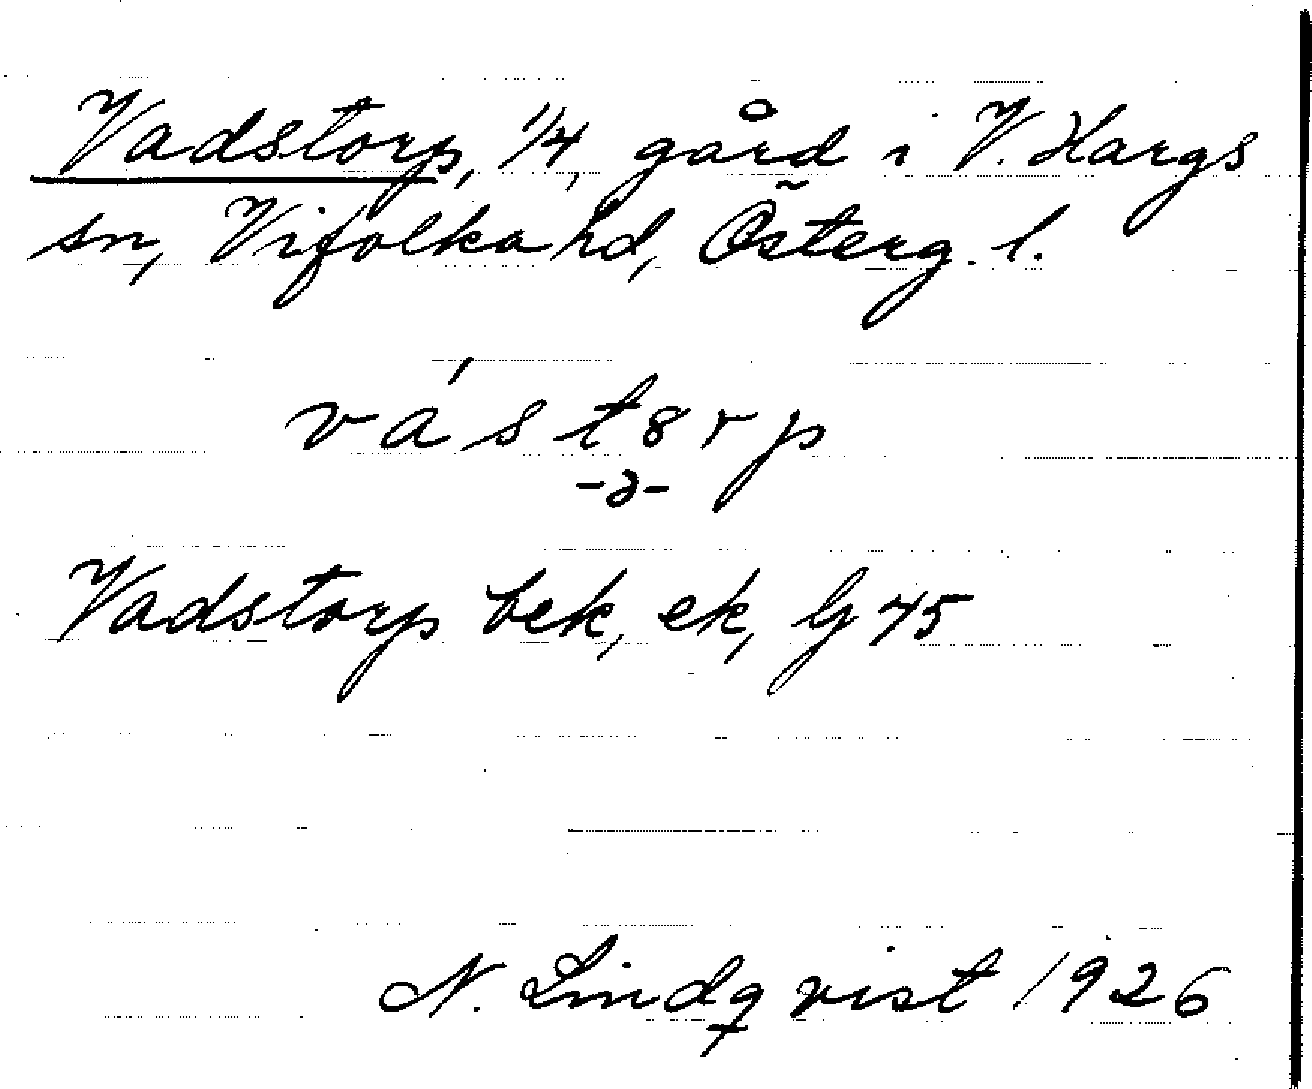 Vadstorp, 1/4, gård i V. Hargs
sn, Vifolka hd, Österg. l.
vás t8rp
-ə-
Vadstorp bek, ek, Gj 45
N. Lindqvist 1926